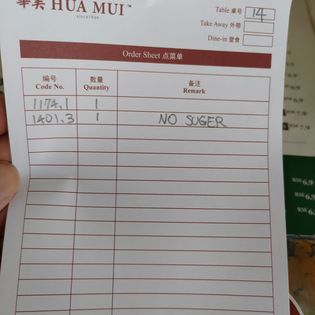 華美 HUA MUI™
since 1946
Table 桌号 14
Take Away 外带
Dine-in 堂食
Order Sheet 点菜单
编号 数量 备注
Code No. Quantity Remark
1174.1 1
1401.3 1 NO SUGER